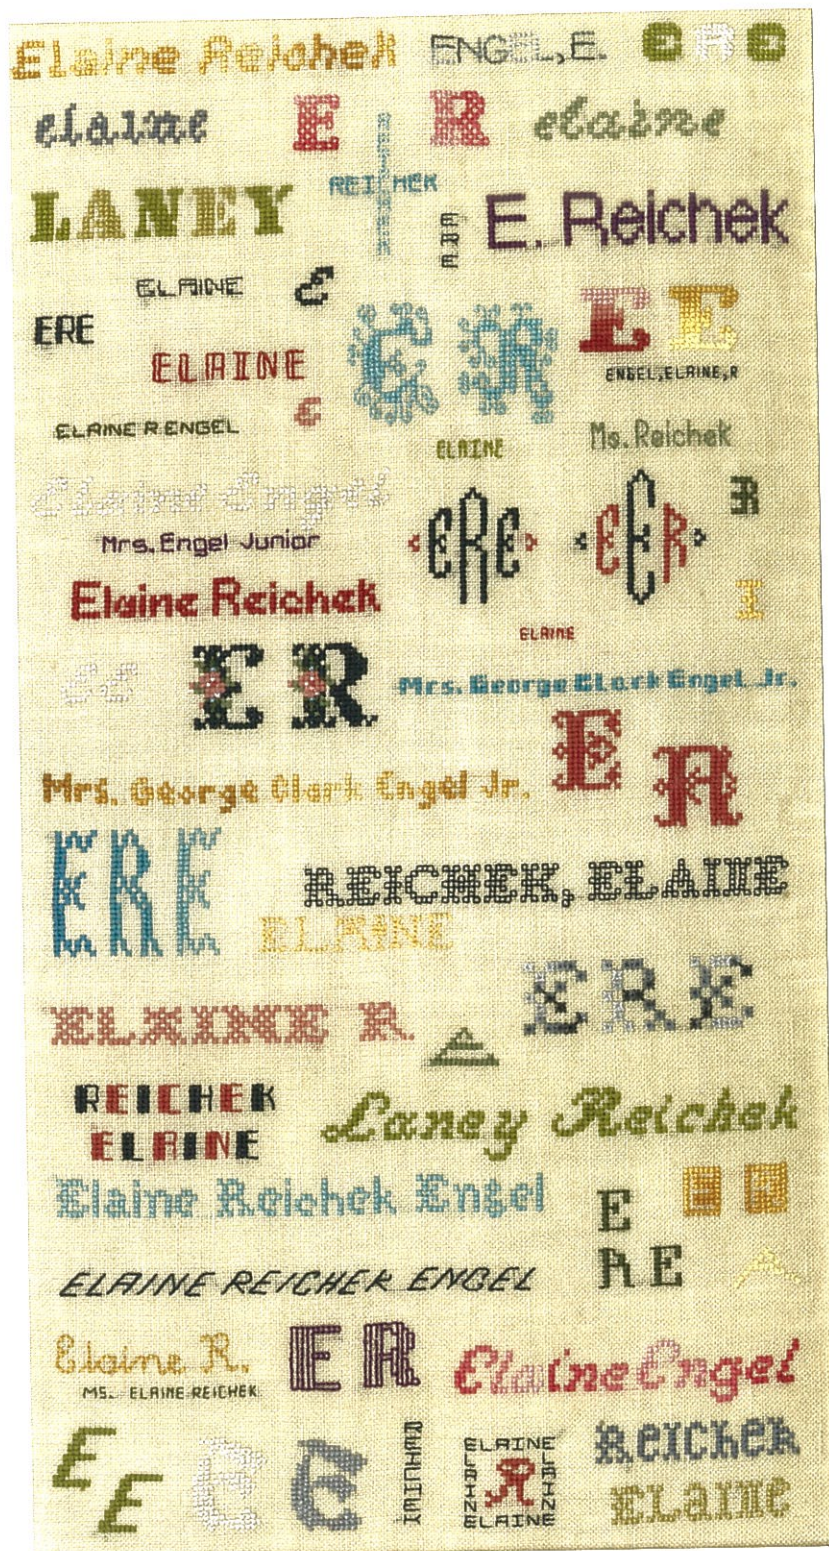 Elaine Reichek
ENGEL, E.
ERE
elaine
E R
elaine
LANEY
REICHEK
ERE
E. Reichek
ELAINE
E
ERE
ELAINE
E R
E E
ENGEL, ELAINE, R
E
ELAINE R ENGEL
ELAINE
Ms. Reichek
Elaine Engel
Mrs. Engel Junior
ERE
EER
ER
Elaine Reichek
I
ELAINE
ee
E R
Mrs. George Clark Engel Jr.
E R
Mrs. George Clark Engel Jr.
ERE
REICHEK, ELAINE
ELAINE
ERE
ELAINE R.
REICHEK
ELAINE
Laney Reichek
Elaine Reichek Engel
E R
E
R E
ELAINE REICHEK ENGEL
Elaine R.
MS. ELAINE REICHEK
E R
Elaine Engel
E
E
E
E
ELAINE
ELAINE
R
ELAINE
ELAINE
Reichek
Elaine